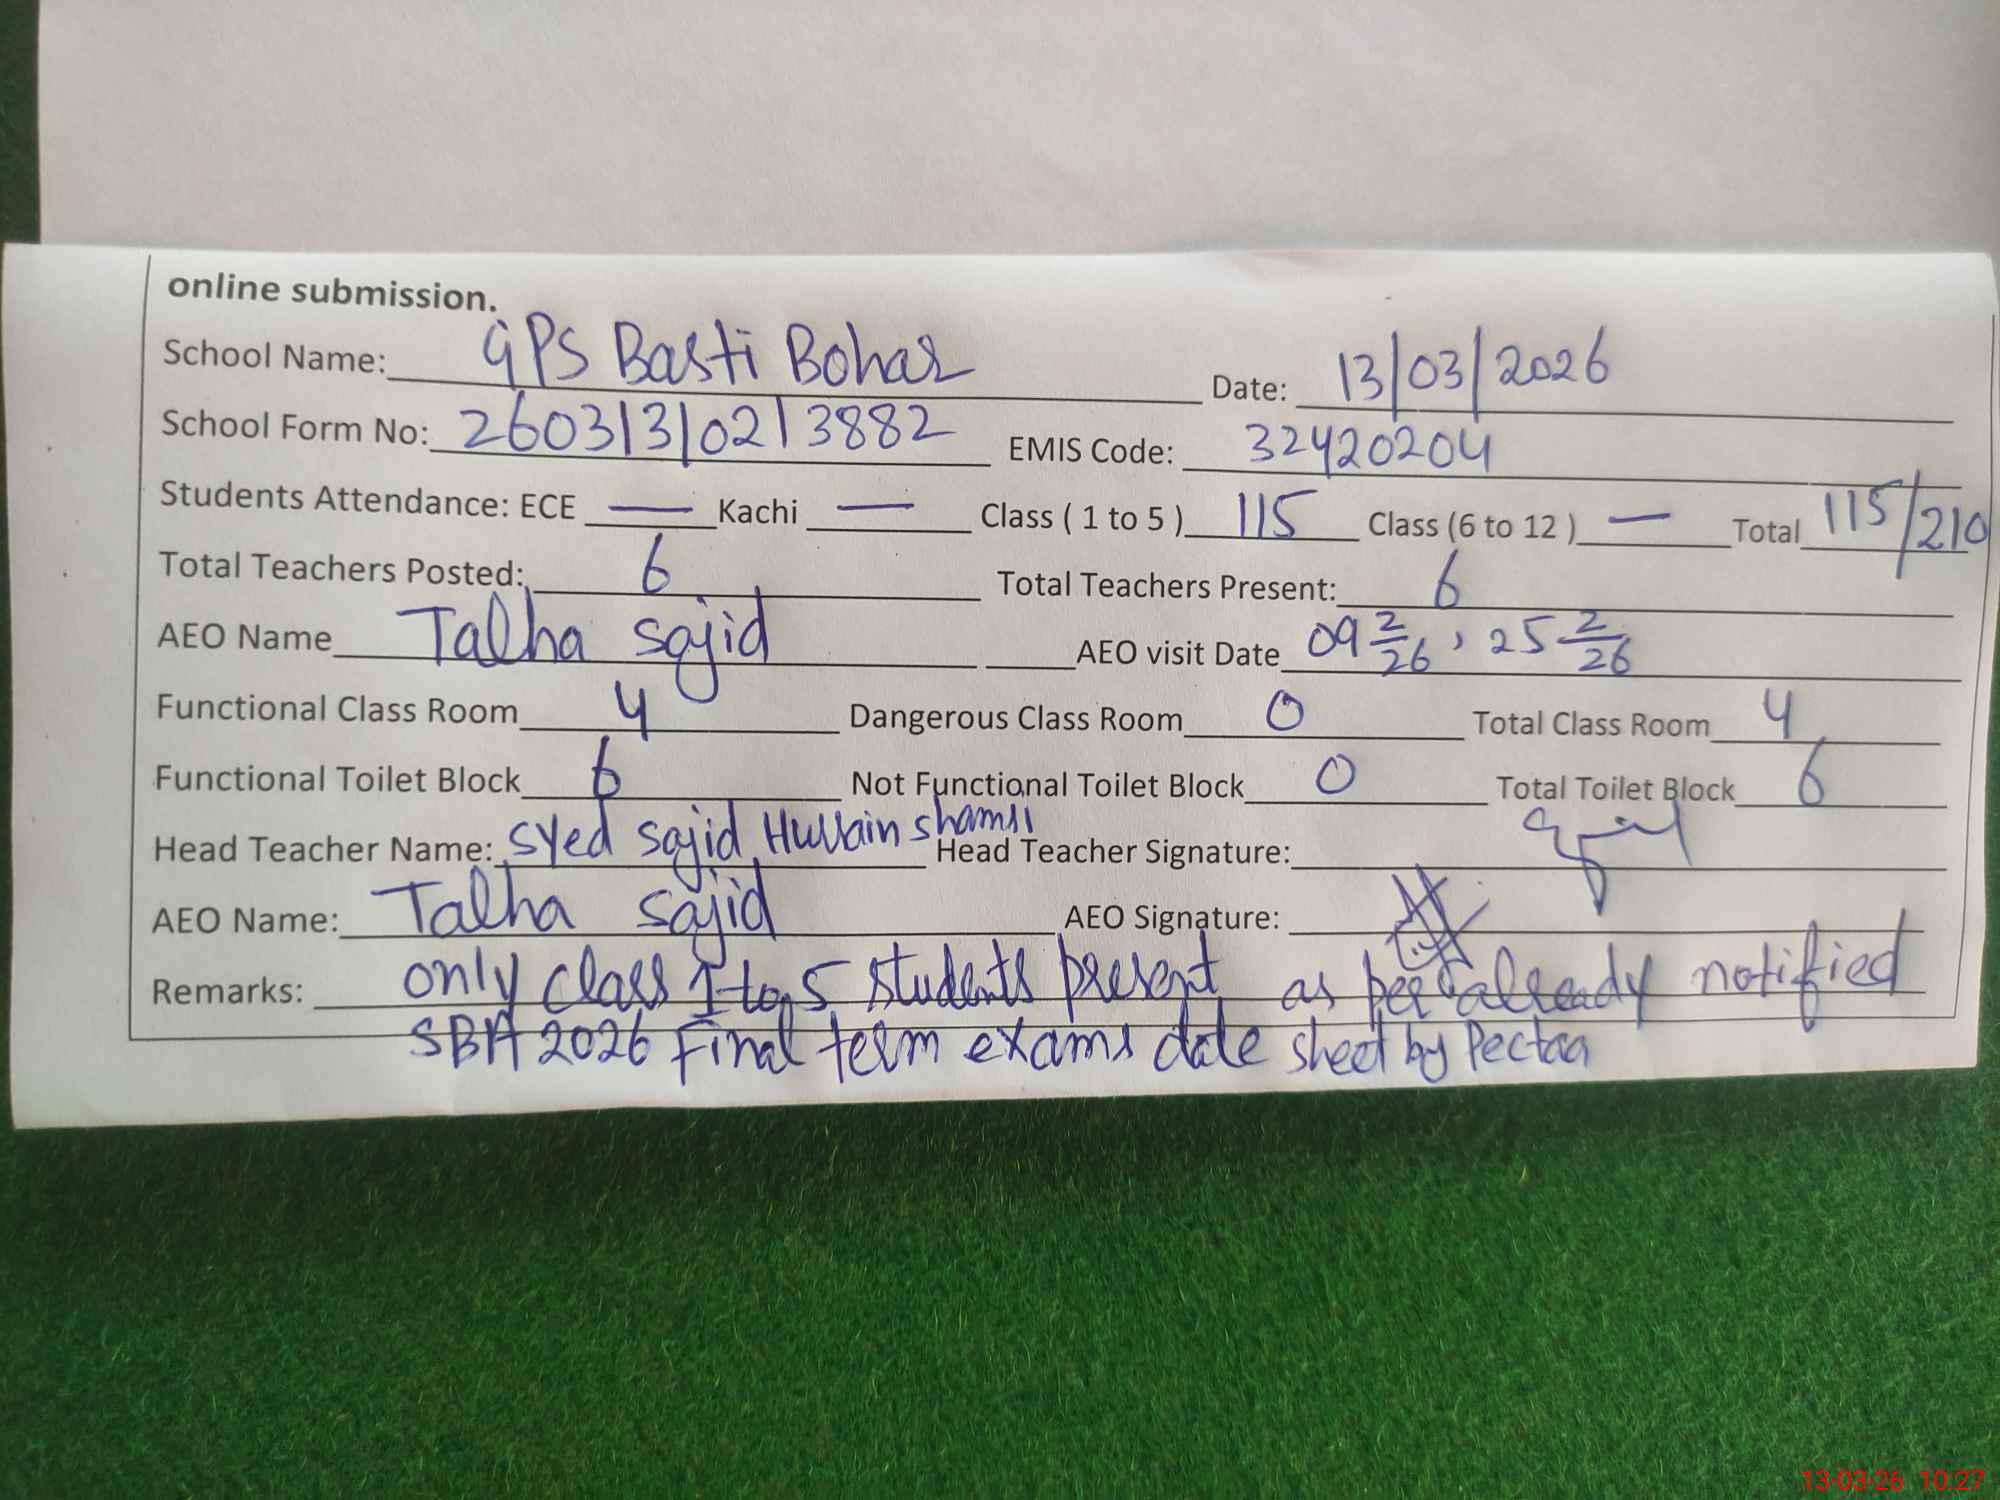 online submission.
School Name: GPS Basti Bohar Date: 13/03/2026
School Form No: 2603131021 3882 EMIS Code: 32420204
Students Attendance: ECE — Kachi — Class ( 1 to 5 ) 115 Class (6 to 12 ) — Total 115/210
Total Teachers Posted: 6 Total Teachers Present: 6
AEO Name Talha sajid AEO visit Date 09 2/26, 25 2/26
Functional Class Room 4 Dangerous Class Room 0 Total Class Room 4
Functional Toilet Block 6 Not Functional Toilet Block 0 Total Toilet Block 6
Head Teacher Name: Syed Sajid Hussain shamsi Head Teacher Signature:
AEO Name: Talha sajid AEO Signature:
Remarks: only class 1 to 5 students present as per already notified
SBA 2026 Final term exams date sheet by Pectaa
13-03-26 10:27